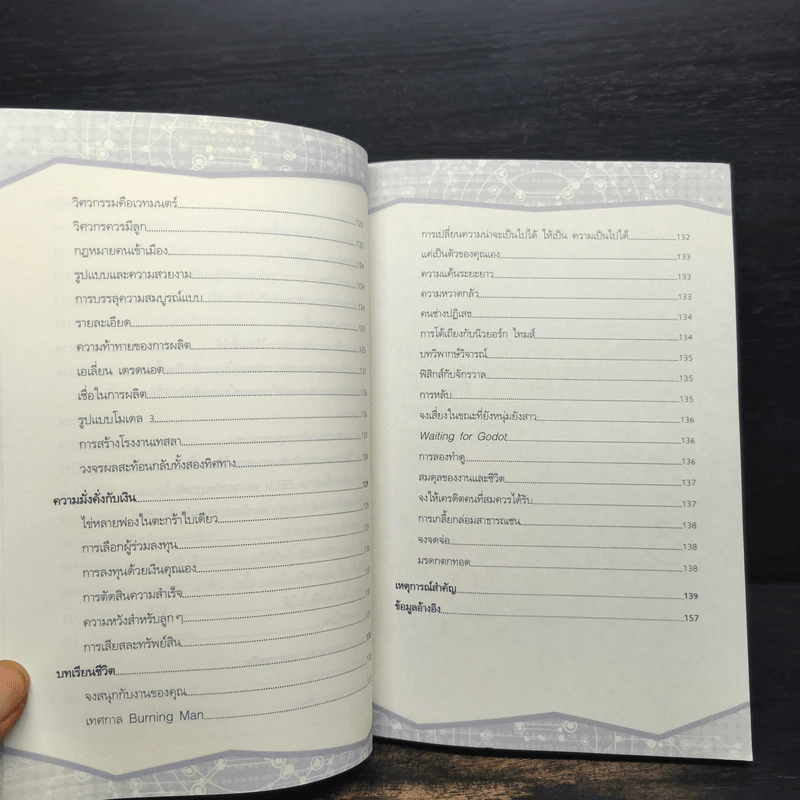 วิศวกรรมคือเวทมนตร์
วิศวกรควรมีลูก
กฎหมายคนเข้าเมือง
รูปแบบและความสวยงาม
การบรรลุความสมบูรณ์แบบ
รายละเอียด
ความท้าทายของการผลิต
เอเลี่ยน เดรดนอต
เชื่อในการผลิต
รูปแบบโมเดล 3
การสร้างโรงงานเทสลา
วงจรผลสะท้อนกลับทั้งสองทิศทาง
ความมั่งคั่งกับเงิน
ไข่หลายฟองในตะกร้าใบเดียว
การเลือกผู้ร่วมลงทุน
การลงทุนด้วยเงินคุณเอง
การตัดสินความสำเร็จ
ความหวังสำหรับลูกๆ
การเสียสละทรัพย์สิน
บทเรียนชีวิต
จงสนุกกับงานของคุณ
เทศกาล Burning Man
การเปลี่ยนความน่าจะเป็นไปได้ ให้เป็น ความเป็นไปได้ 132
แค่เป็นตัวของคุณเอง 133
ความแค้นระยะยาว 133
ความหวาดกลัว 133
คนช่างปฏิเสธ 134
การโต้เถียงกับนิวยอร์ก ไทมส์ 134
บทวิพากษ์วิจารณ์ 135
ฟิสิกส์กับจักรวาล 135
การหลับ 135
จงเสี่ยงในขณะที่ยังหนุ่มยังสาว 136
Waiting for Godot 136
การลองทำดู 136
สมดุลของงานและชีวิต 137
จงให้เครดิตคนที่สมควรได้รับ 137
การเกลี้ยกล่อมสาธารณชน 138
จงจดจ่อ 138
มรดกตกทอด 138
เหตุการณ์สำคัญ 139
ข้อมูลอ้างอิง 157